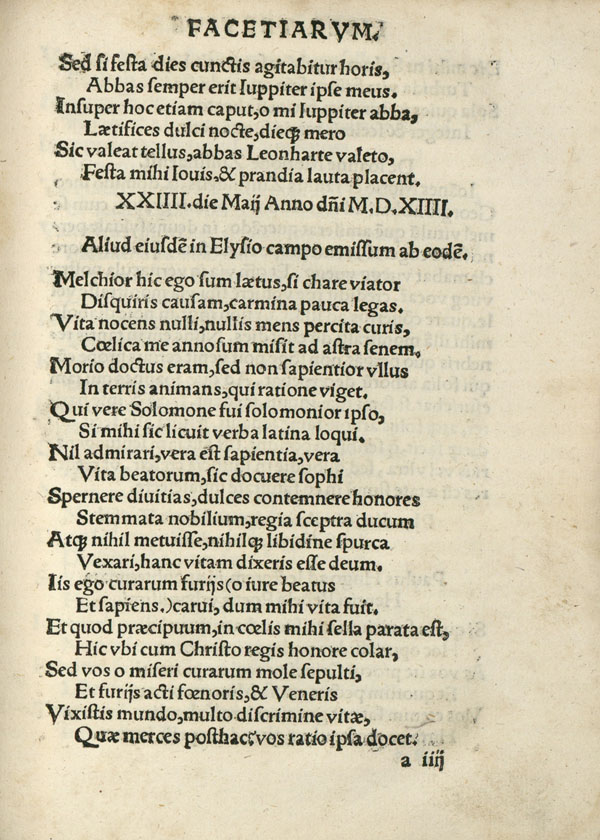 FACETIARVM.
Sed si festa dies cunctis agitabitur horis,
Abbas semper erit Iuppiter ipse meus.
Insuper hoc etiam caput, o mi Iuppiter abba,
Lætifices dulci nocte, dieqꝫ mero
Sic valeat tellus, abbas Leonharte valeto,
Festa mihi Iouis, & prandia lauta placent.
XXIIII. die Maij Anno dñi M.D.XIIII.
Aliud eiusdē in Elysio campo emissum ab eodē.
Melchior hic ego sum lætus, si chare viator
Disquiris causam, carmina pauca legas.
Vita nocens nulli, nullis mens percita curis,
Cœlica me annosum misit ad astra senem,
Morio doctus eram, sed non sapientior vllus
In terris animans, qui ratione viget.
Qui vere Solomone fui solomonior ipso,
Si mihi sic licuit verba latina loqui.
Nil admirari, vera est sapientia, vera
Vita beatorum, sic docuere sophi
Spernere diuitias, dulces contemnere honores
Stemmata nobilium, regia sceptra ducum
Atqꝫ nihil metuisse, nihilqꝫ libidine spurca
Vexari, hanc vitam dixeris esse deum.
Iis ego curarum furijs (o iure beatus
Et sapiens.) carui, dum mihi vita fuit.
Et quod præcipuum, in cœlis mihi sella parata est,
Hic vbi cum Christo regis honore colar,
Sed vos o miseri curarum mole sepulti,
Et furijs acti fœnoris, & Veneris
Vixistis mundo, multo discrimine vitæ,
Quæ merces posthac? vos ratio ipsa docet.
a iiij